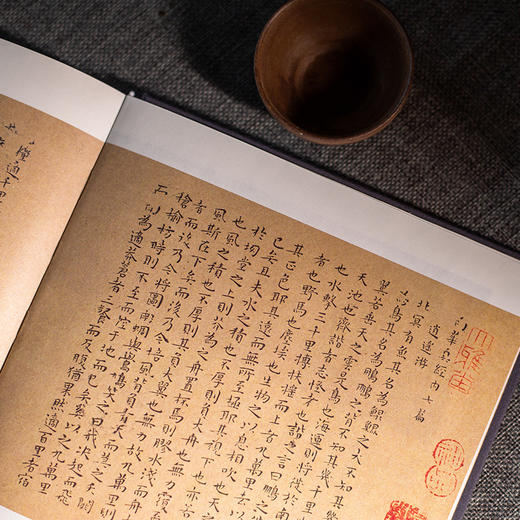 南華真經內七篇
逍遙游
北冥有魚其名為鯤鯤之大不知其幾
為鳥其名為鵬鵬之背不知其幾千里
翼若垂天之雲是鳥也海運則將徙於南
天池也齊諧者志怪者也諧之言曰鵬之
也水擊三千里摶扶搖而上者九萬里去以
者也野馬也塵埃也生物之以息相吹也天
其正色耶其遠而無所至極耶其視下也亦若
已矣且夫水之積也不厚則負大舟也無力覆
於坳堂之上則芥為之舟置杯焉則膠水淺而舟
也風之積也不厚則其負大翼也無力故九萬里則
風斯在下矣而後乃今培風背負青天而莫之夭閼
者而後乃今將圖南蜩與鷽鳩笑之曰我決起而飛
槍榆枋時則不至而控於地而已矣奚以之九萬里
而南為適莽蒼者三餐而反腹猶果然適百里者宿
適千里